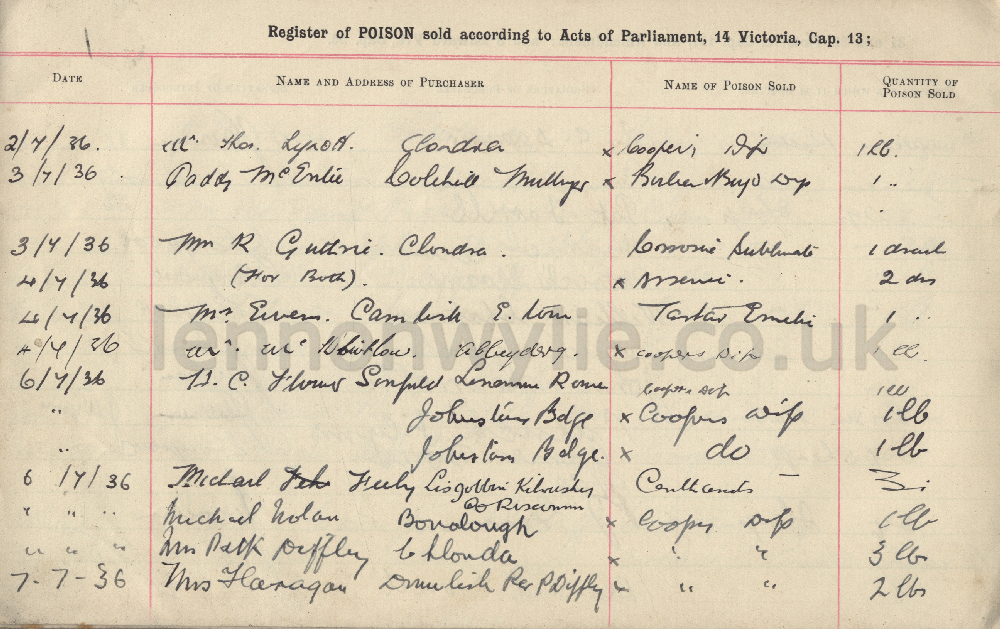 Register of POISON sold according to Acts of Parliament, 14 Victoria, Cap. 13;
DATE NAME AND ADDRESS OF PURCHASER NAME OF POISON SOLD QUANTITY OF POISON SOLD
2/7/36. Mr Thos. Lynott. Clondra x Cooper's Dip 1 lb.
3/7/36. Paddy McEntee x Dip 1 ..
3/7/36 Mr R Guthrie. Clondra. Corrosive Sublimate 1 drach
4/7/36 (For Both). x Arsenic. 2 drs
4/7/36 Mr Camlisk E. town Tartar Emetic 1 ..
4/7/36 Mr. Mc Abbeyderg. x Coopers Dip 1 lb.
6/7/36 H. C. Coopers Dip 1 lb
" Johnstons Bdge x Coopers Dip 1 lb
" Johnstons Bdge. x do 1 lb
6/7/36 Michael Feely
Co Roscommon
" " " Michael Nolan x Coopers Dip 1 lb
" " " Mrs Patk Diffley Clonda x " " 3 lbs
7-7-36 Mrs Flanagan Drumlish Per P Diffley x " " 2 lbs
lennonwylie.co.uk